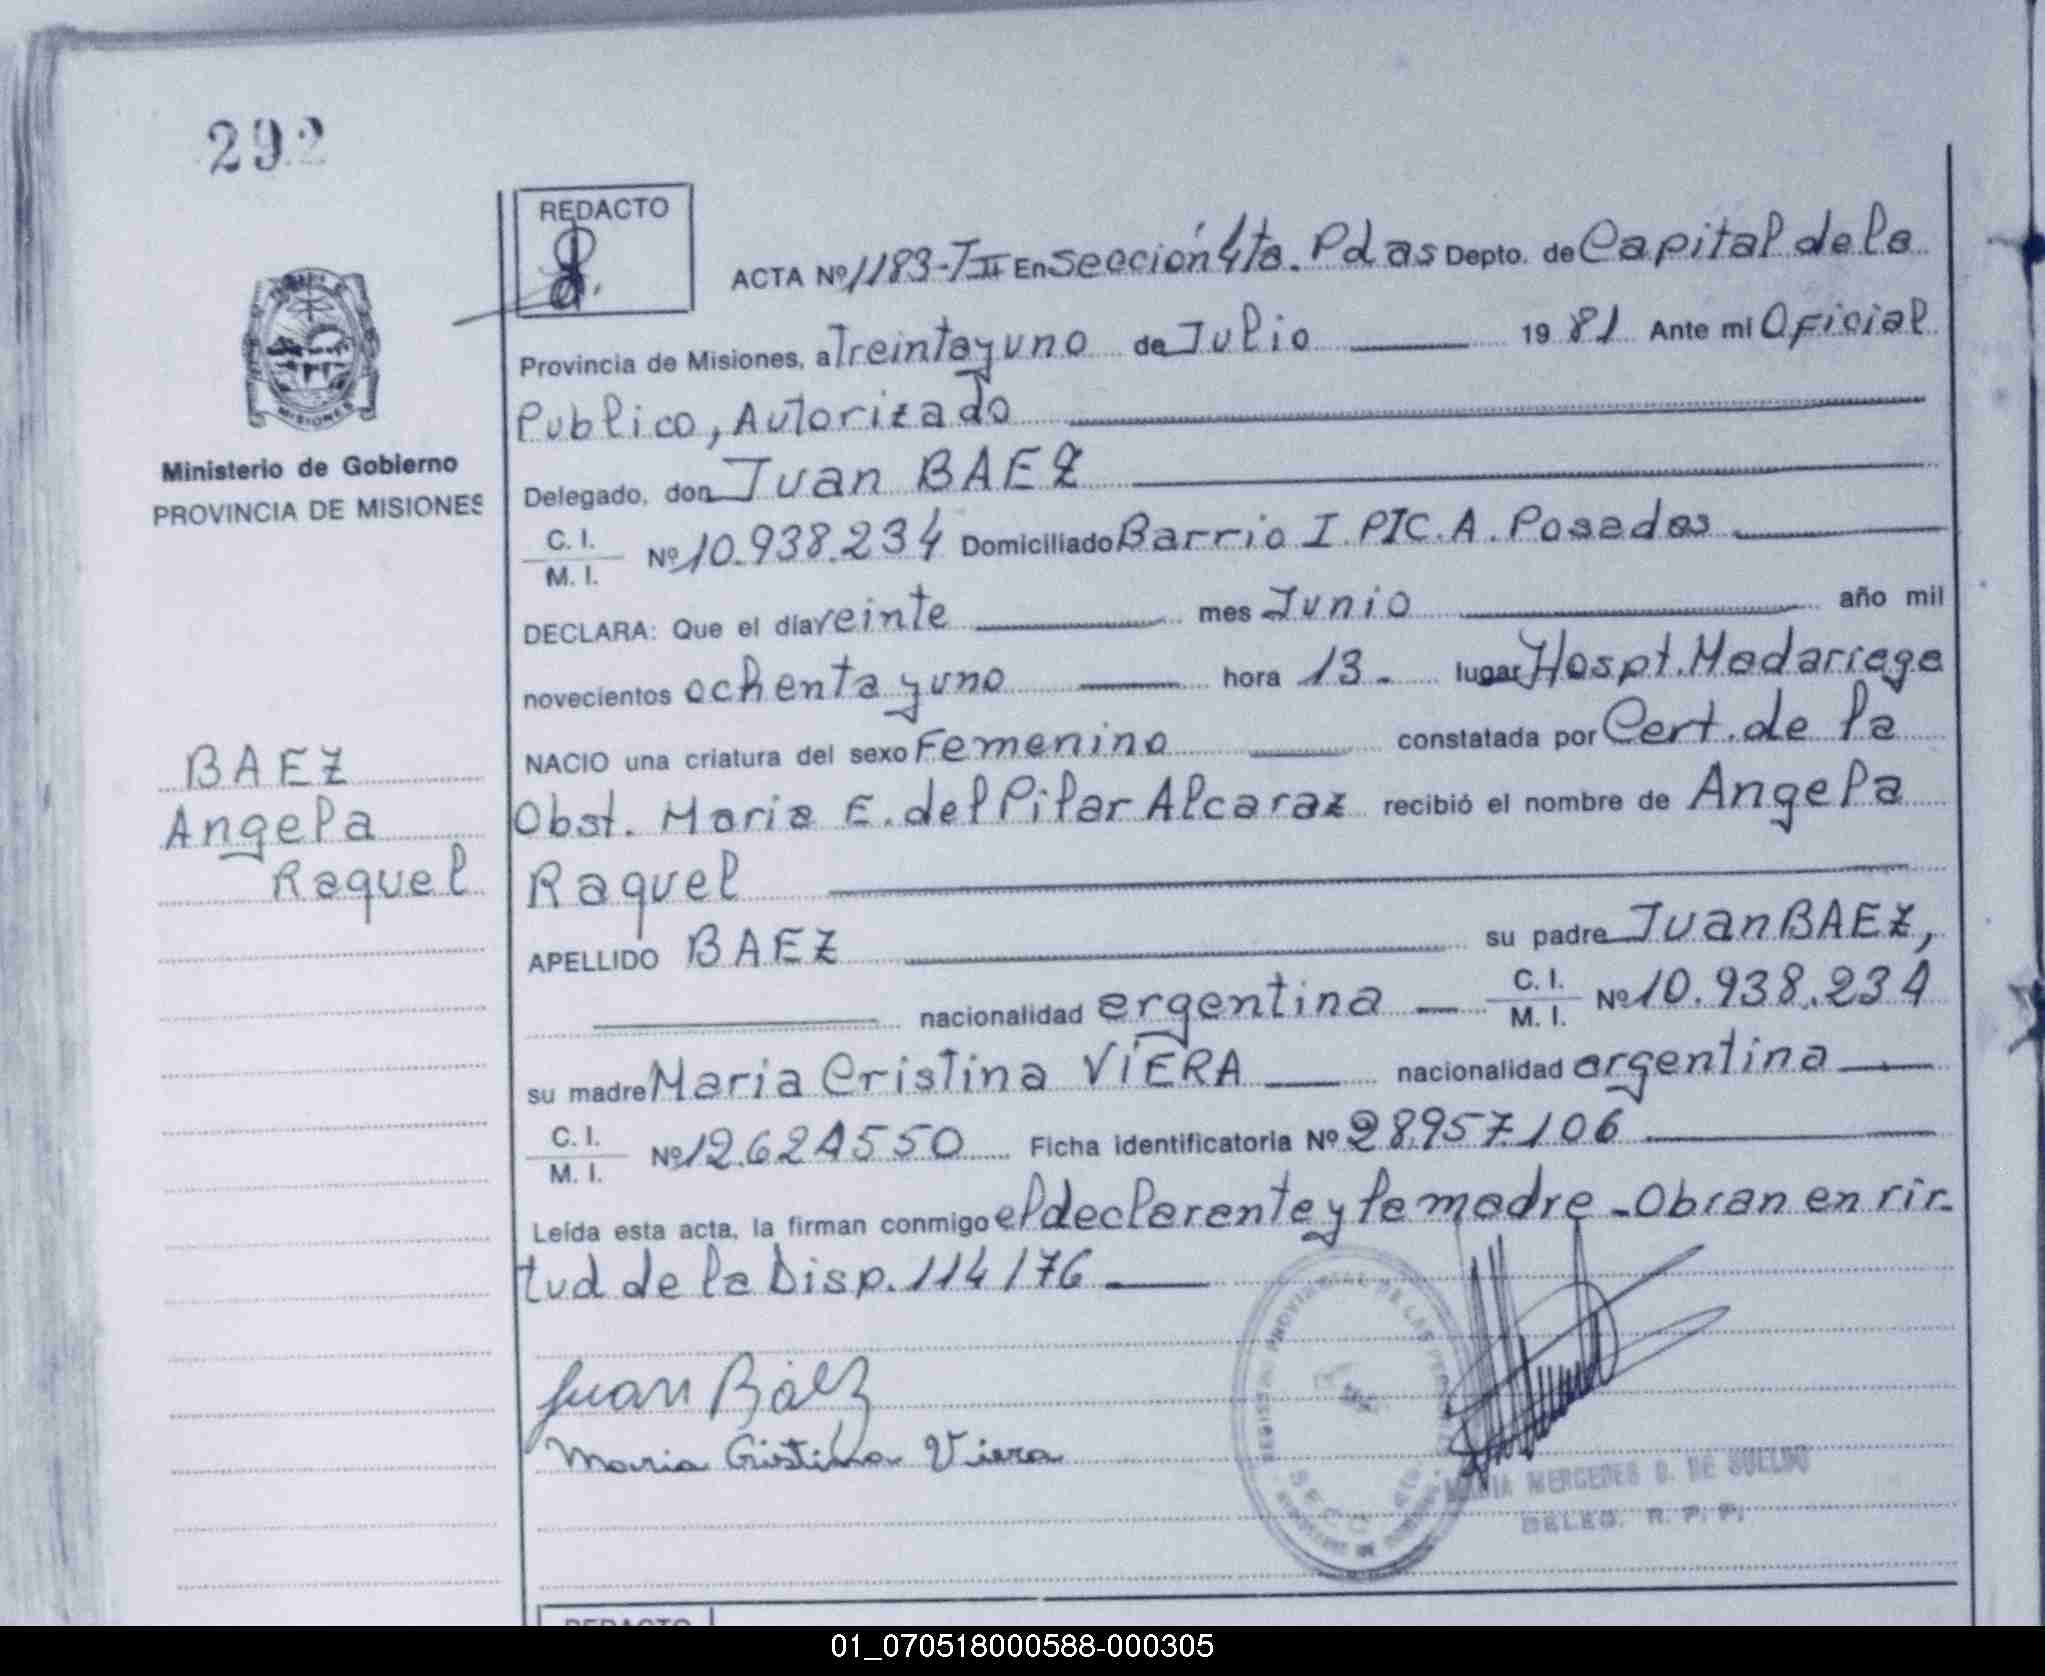 292
REDACTO
ACTA Nº 1183-TII En Sección 4ta. Pdas Depto. de Capital de la
Provincia de Misiones, a Treinta y uno de Julio 19 81 Ante mi Oficial
Publico, Autorizado
Delegado, don Juan BAEZ
C. I.
M. I. Nº 10.938.234 Domiciliado Barrio I.PIC.A. Posadas
DECLARA: Que el día veinte mes Junio año mil
novecientos ochenta y uno hora 13. lugar Hospt. Madariaga
NACIO una criatura del sexo Femenino constatada por Cert. de la
Obst. Maria E. del Pilar Alcaraz recibió el nombre de Angela
Raquel
APELLIDO BAEZ su padre Juan BAEZ,
nacionalidad argentina C. I.
M. I. Nº 10.938.234
su madre Maria Cristina VIERA nacionalidad argentina
C. I.
M. I. Nº 12.624550 Ficha identificatoria Nº 28.957.106
Leída esta acta, la firman conmigo el declarante y la madre - Obran en vir-
tud de la Disp. 114/76
Juan Báez
Maria Cristina Viera
MARIA MERCEDES D. DE SUELDO
DELEG. R. P. P.
Ministerio de Gobierno
PROVINCIA DE MISIONES
BAEZ
Angela
Raquel
REDACTO
01_070518000588-000305